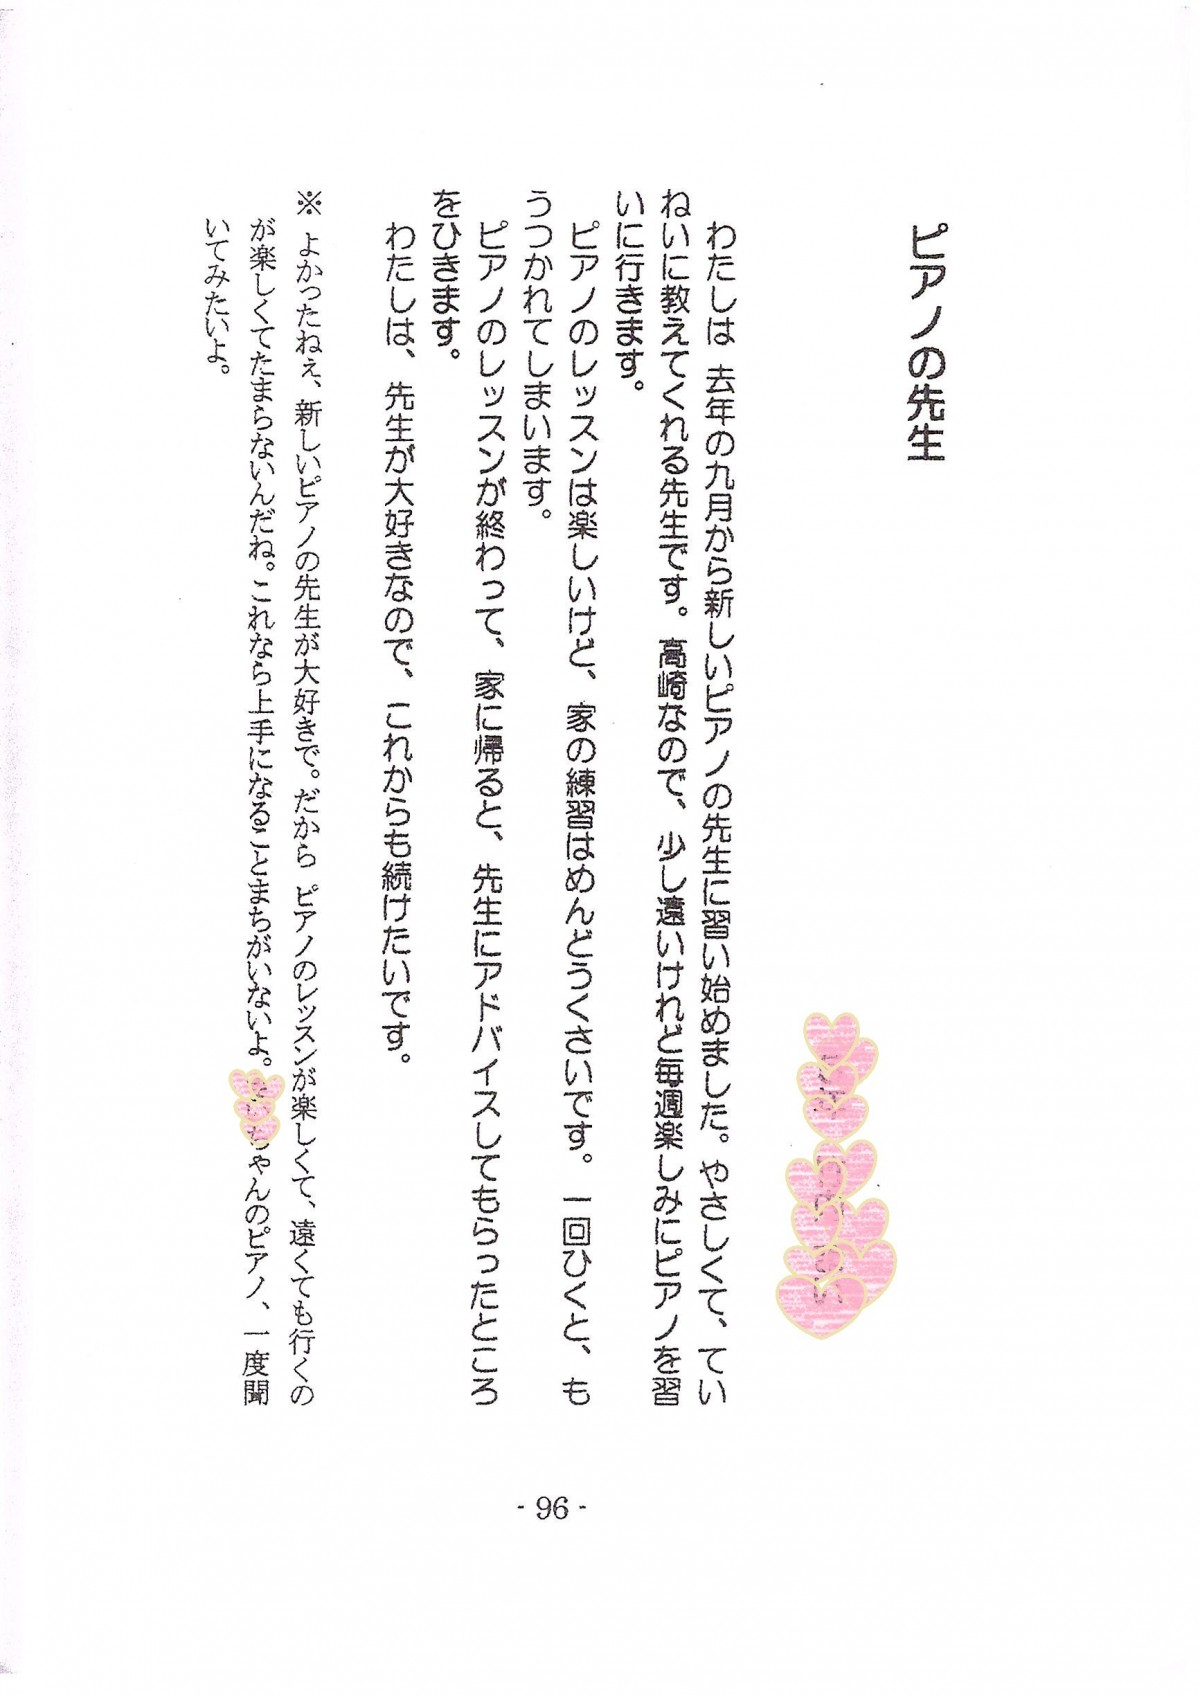 ピアノの先生
わたしは 去年の九月から新しいピアノの先生に習い始めました。やさしくて、てい
ねいに教えてくれる先生です。高崎なので、少し遠いけれど毎週楽しみにピアノを習
いに行きます。
ピアノのレッスンは楽しいけど、家の練習はめんどうくさいです。一回ひくと、も
うつかれてしまいます。
ピアノのレッスンが終わって、家に帰ると、先生にアドバイスしてもらったところ
をひきます。
わたしは、先生が大好きなので、これからも続けたいです。
※ よかったねぇ、新しいピアノの先生が大好きで。だから ピアノのレッスンが楽しくて、遠くても行くの
が楽しくてたまらないんだね。これなら上手になることまちがいないよ。ちゃんのピアノ、一度聞
いてみたいよ。
- 96 -